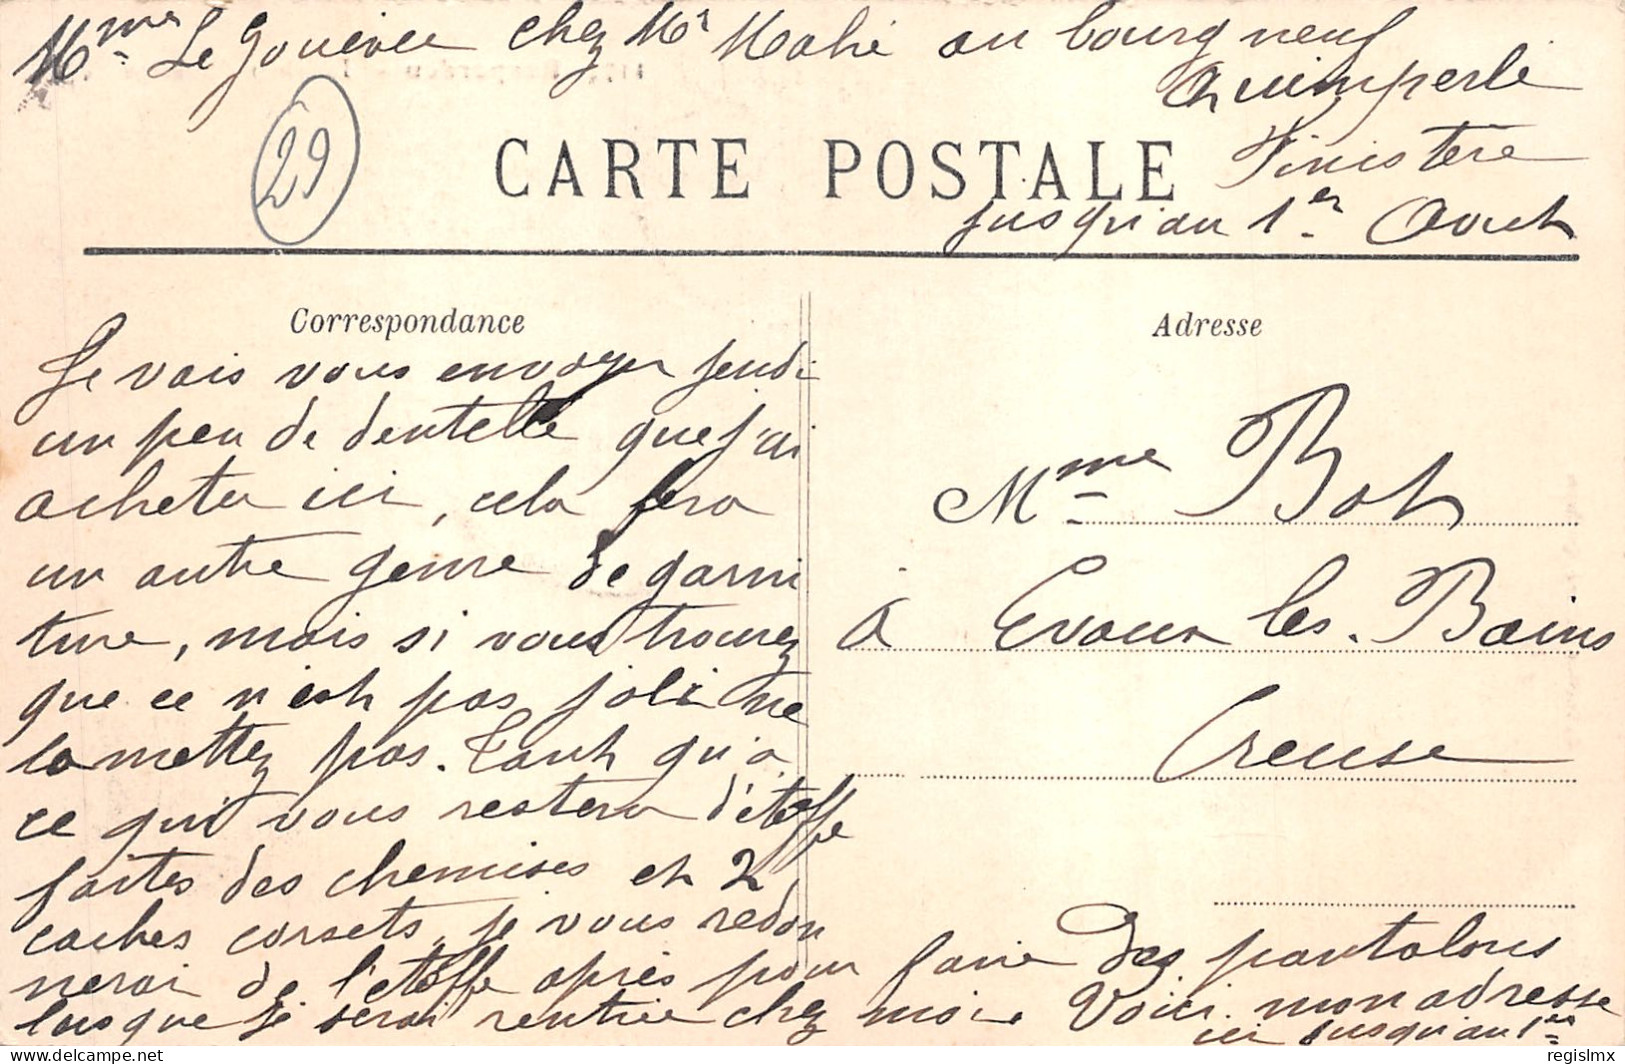 Mme Le Gouévec chez Mr Mahé au bourg neuf
Quimperlé
Finistère
jusqu'au 1er Aout
29
CARTE POSTALE
Correspondance
Adresse
Je vais vous envoyer jeudi
un peu de dentelle que j'ai
acheter ici, cela fera
un autre genre de garni
ture, mais si vous trouvez
que ce n'est pas joli ne
la mettez pas. Tant qu'a
ce qui vous restera d'étoffe
faites des chemises et 2
caches corsets, je vous redon
nerai de l'étoffe après pour faire des pantalons
lorsque je serai rentrée chez moi. Voici mon adresse
ici jusqu'au 1er
Mme Bot
à Evaux les Bains
Creuse
regislmx